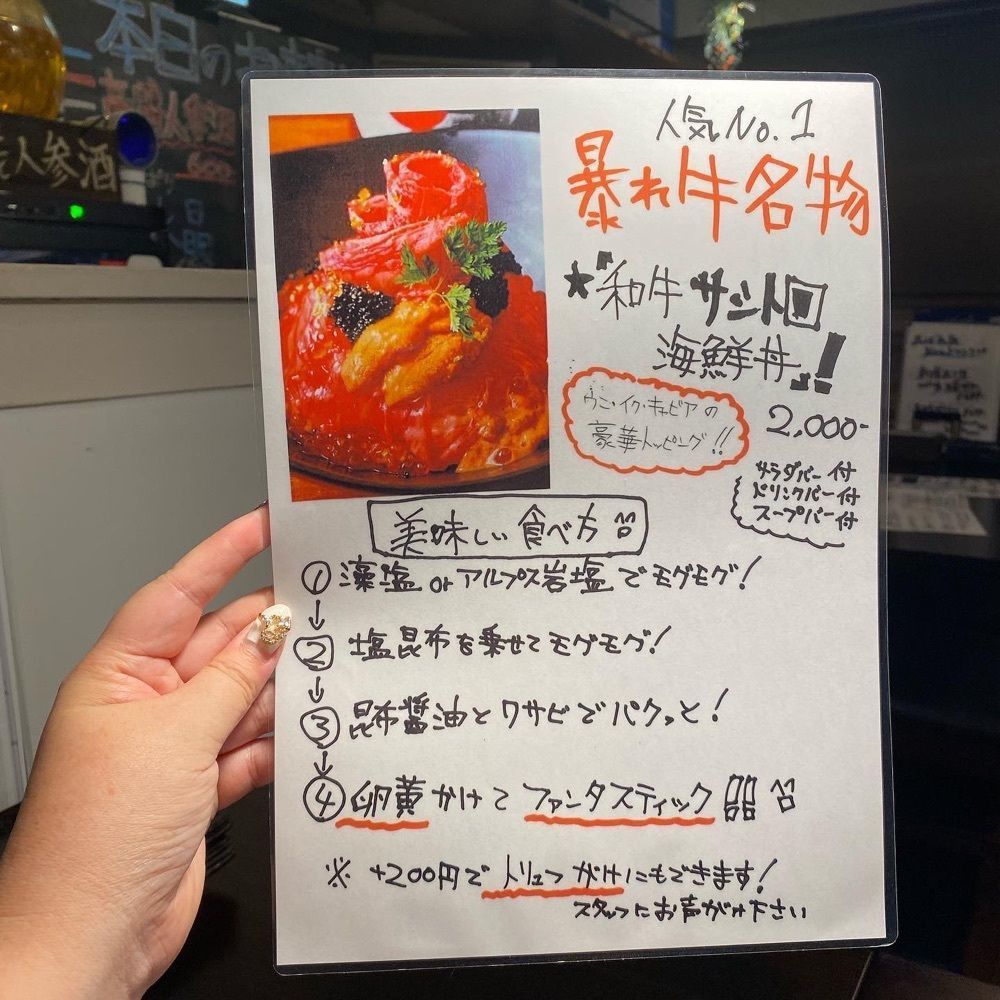 本日のお
人参酒
600
人気No.1
暴れ牛名物
★『和牛サシトロ
海鮮丼』!
ウニ・イクラ・キャビアの
豪華トッピング!!
2,000-
サラダバー付
ドリンクバー付
スープバー付
美味しい食べ方
① 藻塩 or アルプス岩塩でモグモグ!
↓
② 塩昆布を乗せてモグモグ!
↓
③ 昆布醤油とワサビでパクっと!
↓
④ 卵黄かけてファンタスティック!!!
※ +200円でトリュフがけにもできます!
スタッフにお声がけ下さい